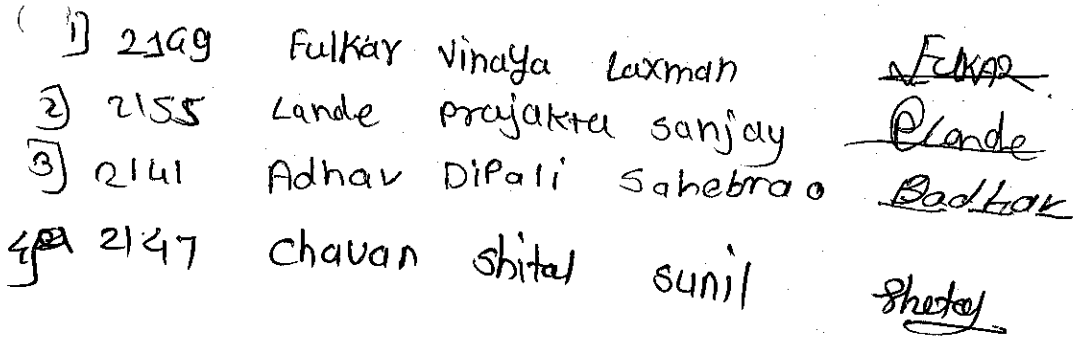 1] 2149 Fulkar Vinaya Laxman VFulkAR
2] 2155 Lande prajakta sanjay PLande
3] 2141 Adhav DiPali Sahebrao Dadhav
4] 2147 Chavan shital sunil